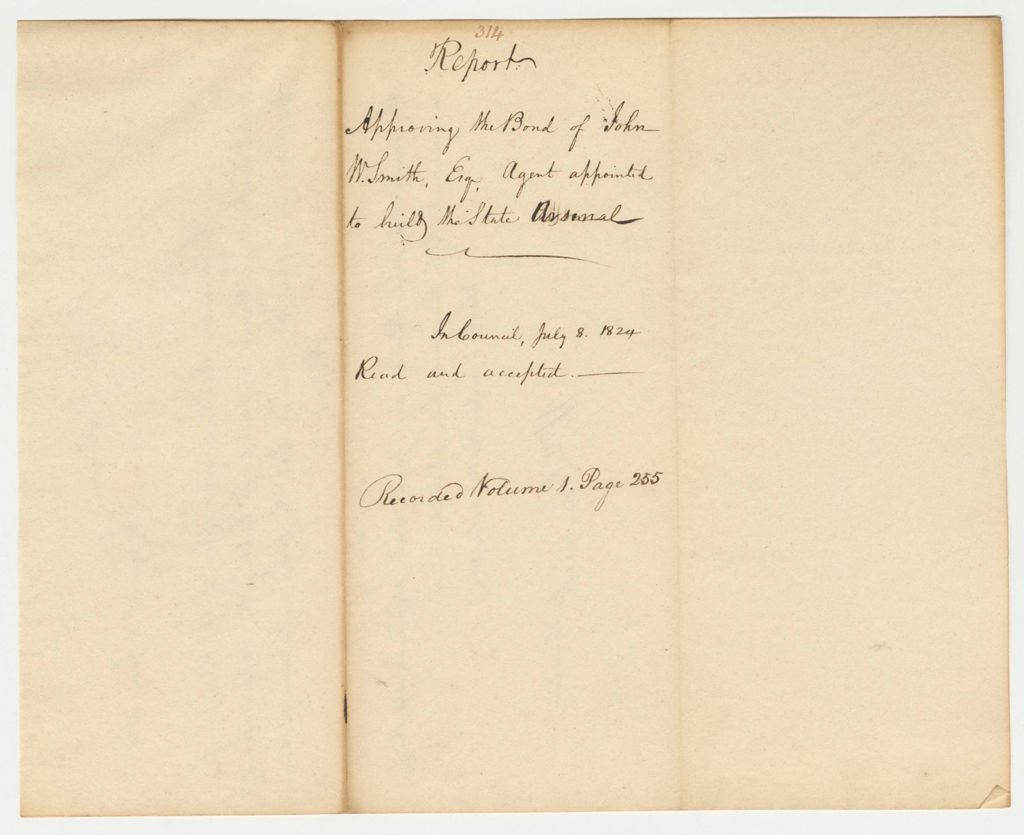 314
Report
Approving the Bond of John
W. Smith, Esq, Agent appointed
to build the State Arsenal
In Council, July 8. 1824
Read and accepted.
Recorded Volume 1. Page 255